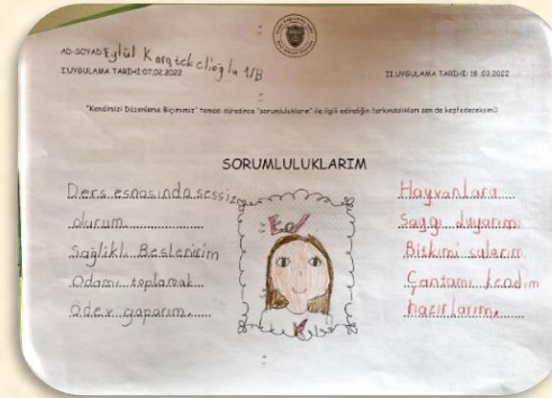 AD-SOYAD: Eylül Karatekelioğlu 1/B
I.UYGULAMA TARİHİ: 07.02.2022
II.UYGULAMA TARİHİ: 18.03.2022
"Kendimizi Düzenleme Biçimimiz" teması süresince "sorumlulukların" ile ilgili edindiğin farkındalıkları sen de keşfedeceksin
SORUMLULUKLARIM
Ders esnasında sessiz
olurum
Sağlıklı Beslenirim
Odamı toplamak
Ödev yaparım.
Hayvanlara
Saygı duyarım
Bitkimi sularım
Çantamı kendim
hazırlarım.